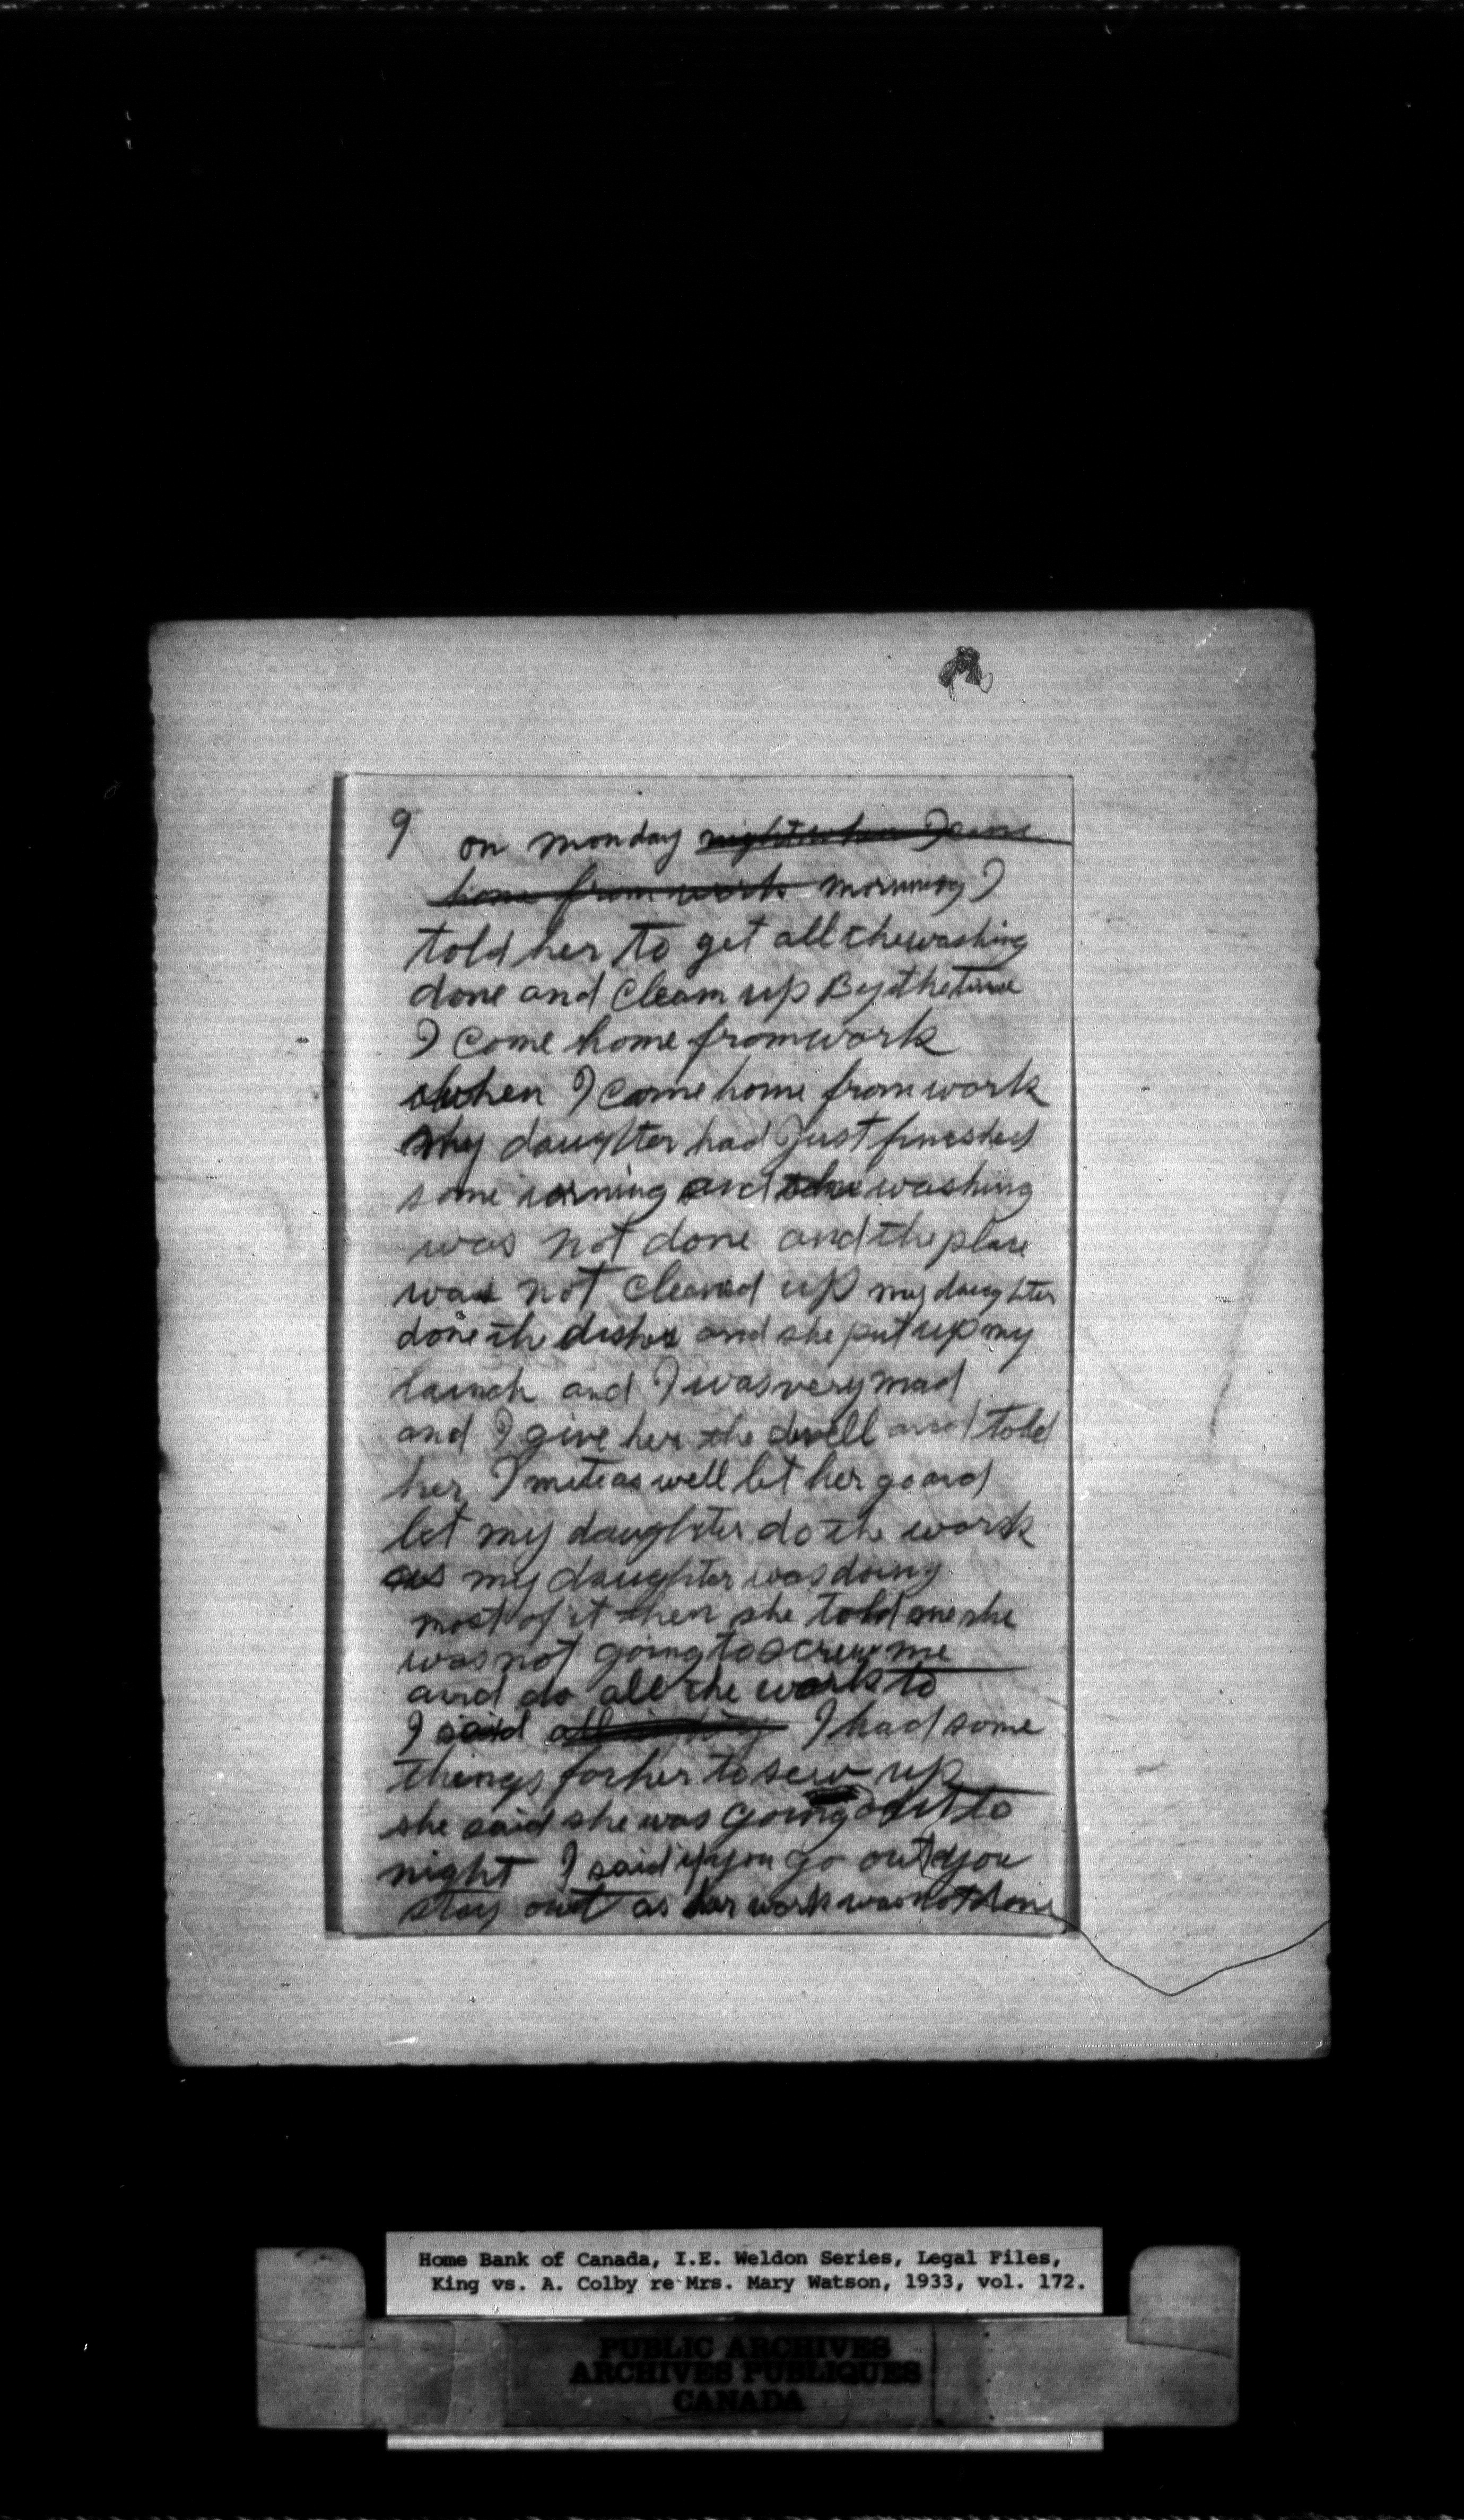 9 on monday night when I came
home from work morning I
told her to get all the washing
done and cleam up By the time
I come home from work
when I come home from work
my daughter had Just fineshed
some iorning and the washing
was not done and the place
was not cleaned up my daughter
done the dishes and she put up my
launch and I was very mad
and I give her the devell and told
her I mite as well let her go and
let my daughter do the work
as my daughter was doing
most of it then she told me she
was not going to screw me
and do all the work to
I said I had some
things for her to sew up
she said she was going out to
night I said if you go out you
stay out as her work was not done
Home Bank of Canada, I.E. Weldon Series, Legal Files,
King vs. A. Colby re Mrs. Mary Watson, 1933, vol. 172.
PUBLIC ARCHIVES
ARCHIVES PUBLIQUES
CANADA